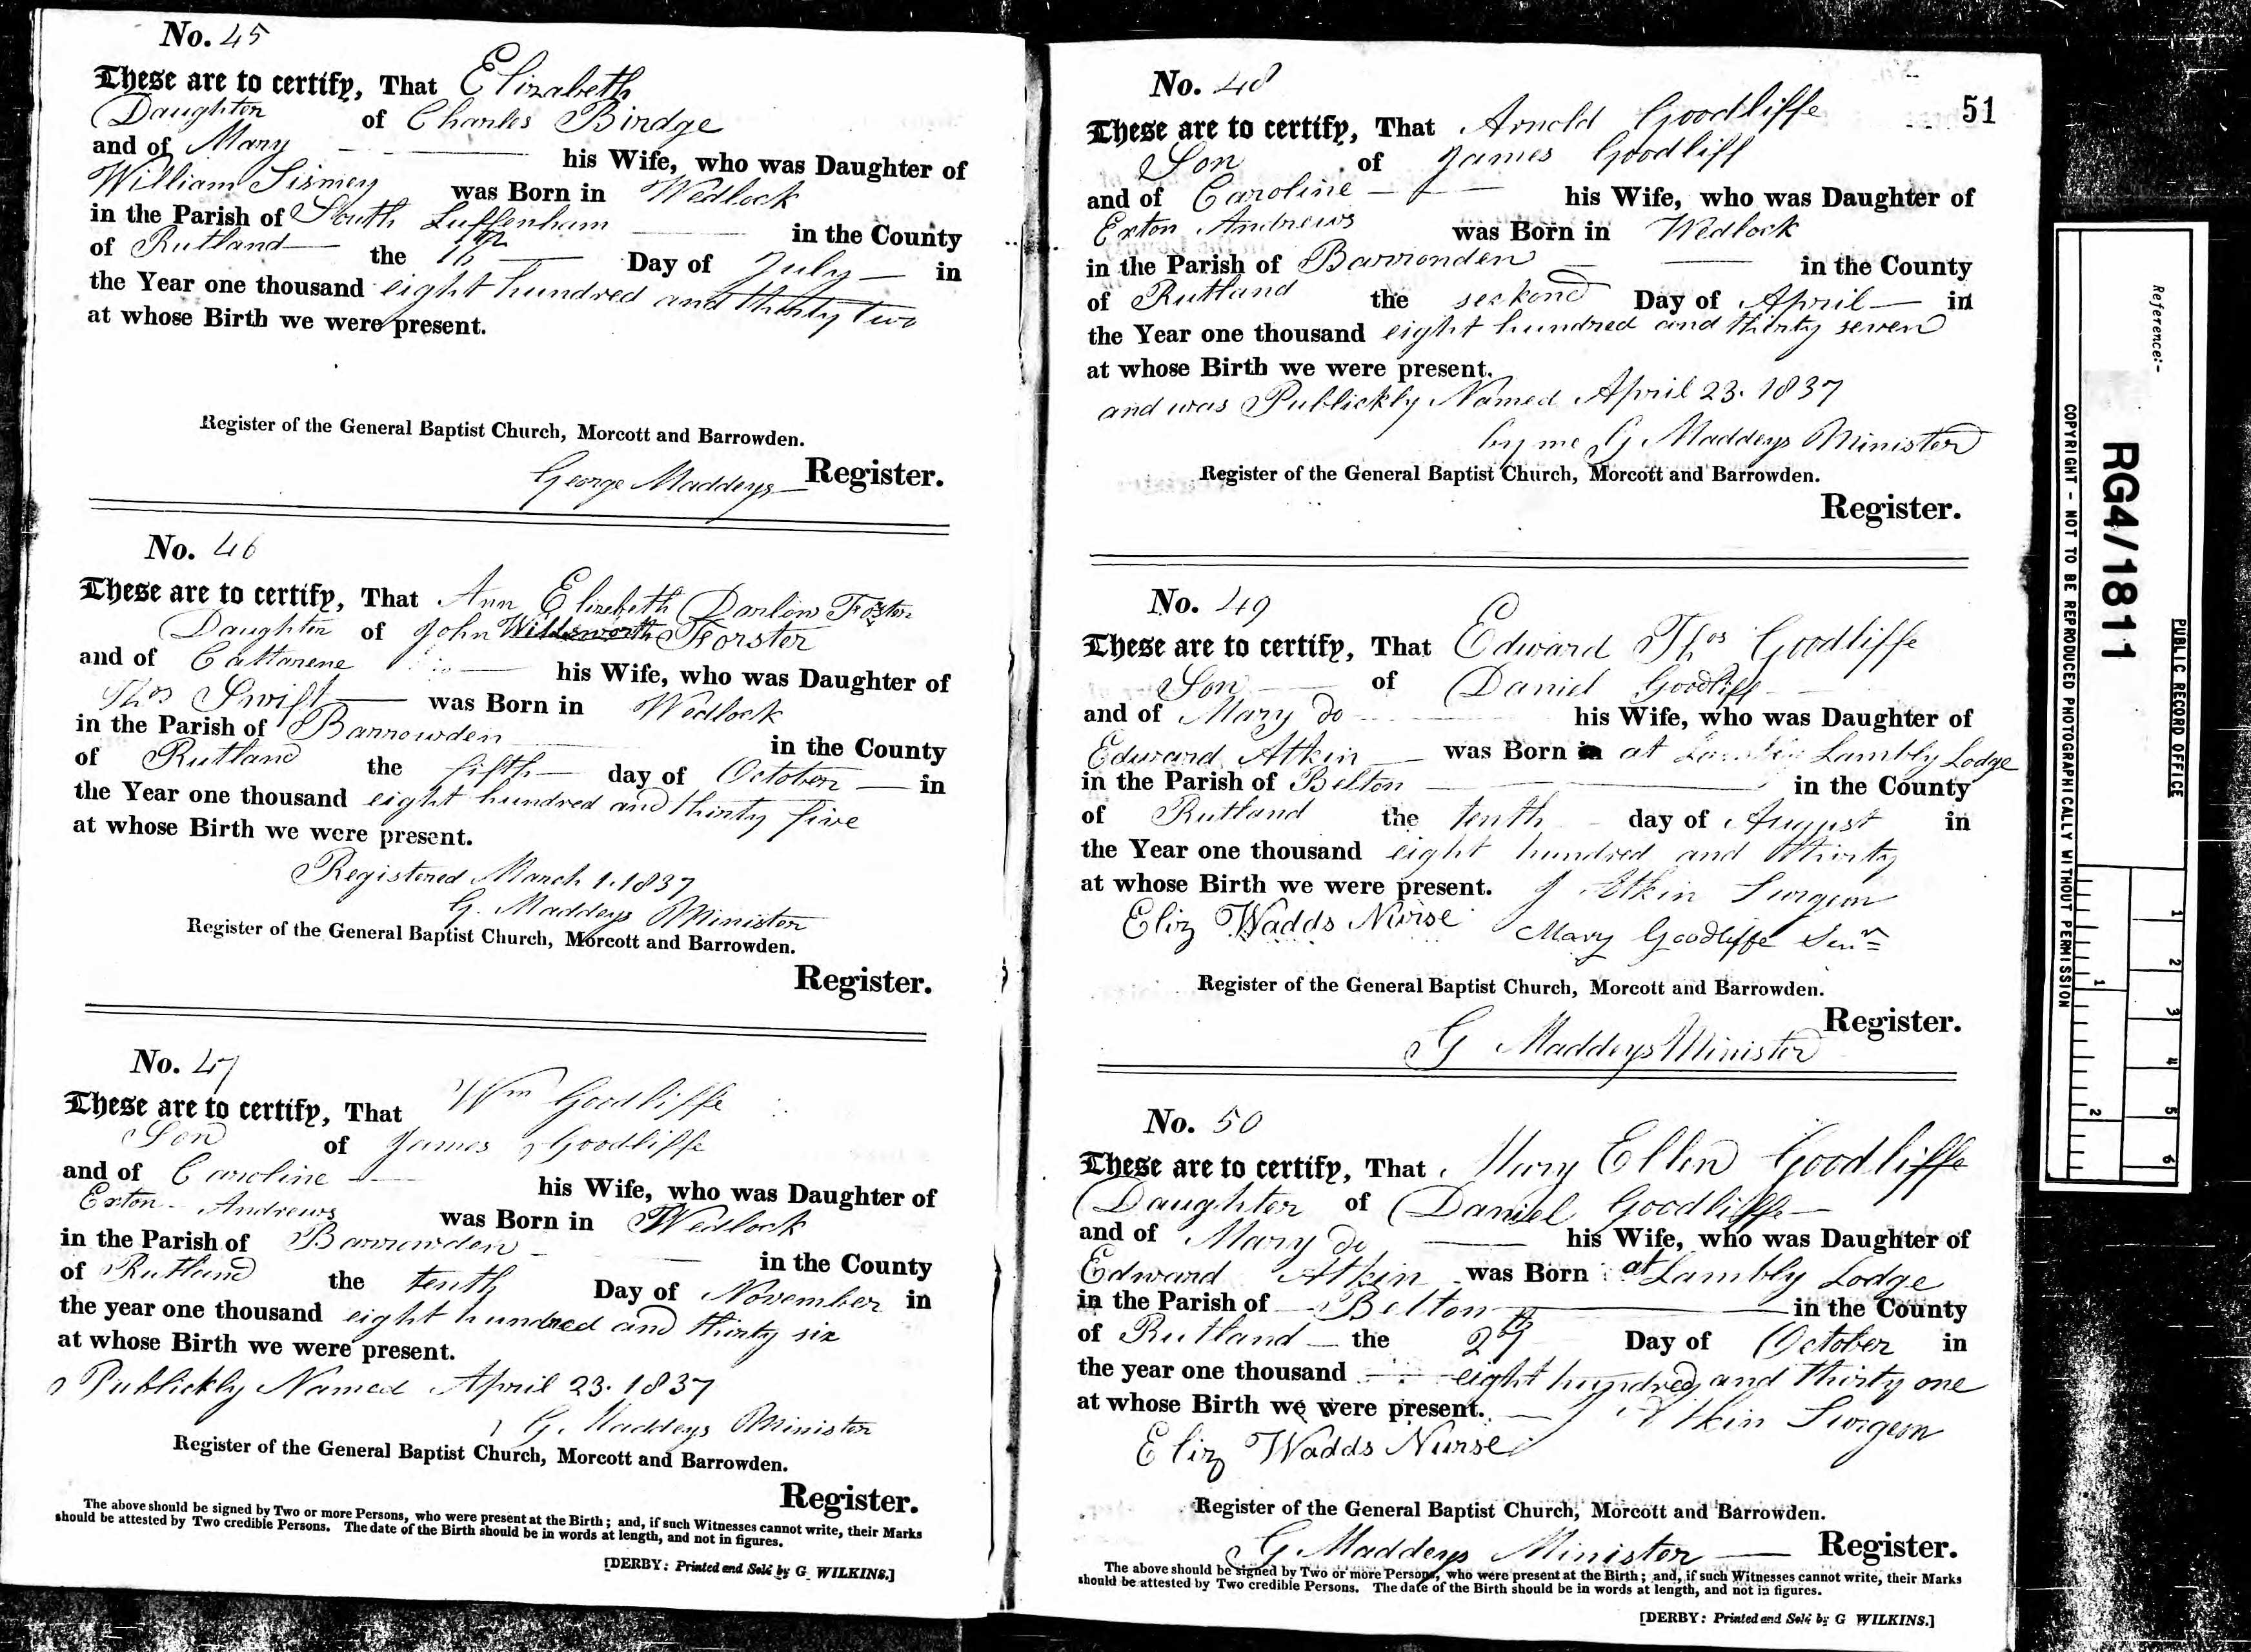 No. 45
These are to certify, That Elizabeth
Daughter of Charles Birdge
and of Mary his Wife, who was Daughter of
William Sismey was Born in Wedlock
in the Parish of South Luffenham in the County
of Rutland the 16th Day of July in
the Year one thousand eight hundred and thirty two
at whose Birth we were present.
Register of the General Baptist Church, Morcott and Barrowden.
George Maddeys Register.
No. 46
These are to certify, That Ann Elizebeth Darlow Foster
Daughter of John Forster
and of Cattarene his Wife, who was Daughter of
Thos Swift was Born in Wedlock
in the Parish of Barrowden in the County
of Rutland the fifth day of October in
the Year one thousand eight hundred and thirty five
at whose Birth we were present.
Registered March 1. 1837
G. Maddeys Minister
Register of the General Baptist Church, Morcott and Barrowden.
Register.
No. 47
These are to certify, That Wm Goodliffe
Son of James Goodliffe
and of Caroline his Wife, who was Daughter of
Exton Andrews was Born in Wedlock
in the Parish of Barrowden in the County
of Rutland the tenth Day of November in
the year one thousand eight hundred and thirty six
at whose Birth we were present.
Publickly Named April 23. 1837
G. Maddeys Minister
Register of the General Baptist Church, Morcott and Barrowden.
Register.
The above should be signed by Two or more Persons, who were present at the Birth; and, if such Witnesses cannot write, their Marks
should be attested by Two credible Persons. The date of the Birth should be in words at length, and not in figures.
[DERBY: Printed and Sold by G. WILKINS.]
51
No. 48
These are to certify, That Arnold Goodliffe
Son of James Goodliff
and of Caroline his Wife, who was Daughter of
Exton Andrews was Born in Wedlock
in the Parish of Barronden in the County
of Rutland the seckond Day of April in
the Year one thousand eight hundred and thirty seven
at whose Birth we were present.
and was Publickly Named April 23. 1837
by me G Maddeys Minister
Register of the General Baptist Church, Morcott and Barrowden.
Register.
No. 49
These are to certify, That Edward Thos Goodliffe
Son of Daniel Goodliff
and of Mary do his Wife, who was Daughter of
Edward Atkin was Born at Lambly Lodge
in the Parish of Belton in the County
of Rutland the tenth day of August in
the Year one thousand eight hundred and thirty
at whose Birth we were present. J Atkin Surgeon
Eliz Wadds Nurse Mary Goodliffe Senr
Register of the General Baptist Church, Morcott and Barrowden.
Register.
G Maddeys Minister
No. 50
These are to certify, That Mary Ellen Goodliffe
Daughter of Daniel Goodliffe
and of Mary do his Wife, who was Daughter of
Edward Atkin was Born at Lambly Lodge
in the Parish of Belton in the County
of Rutland the 29th Day of October in
the year one thousand eight hundred and thirty one
at whose Birth we were present. J Atkin Surgeon
Eliz Wadds Nurse
Register of the General Baptist Church, Morcott and Barrowden.
G Maddeys Minister Register.
The above should be signed by Two or more Persons, who were present at the Birth; and, if such Witnesses cannot write, their Marks
should be attested by Two credible Persons. The date of the Birth should be in words at length, and not in figures.
[DERBY: Printed and Sold by G WILKINS.]
PUBLIC RECORD OFFICE
Reference:-
RG4/1811
COPYRIGHT - NOT TO BE REPRODUCED PHOTOGRAPHICALLY WITHOUT PERMISSION
1 2 3 4 5 6
1 2